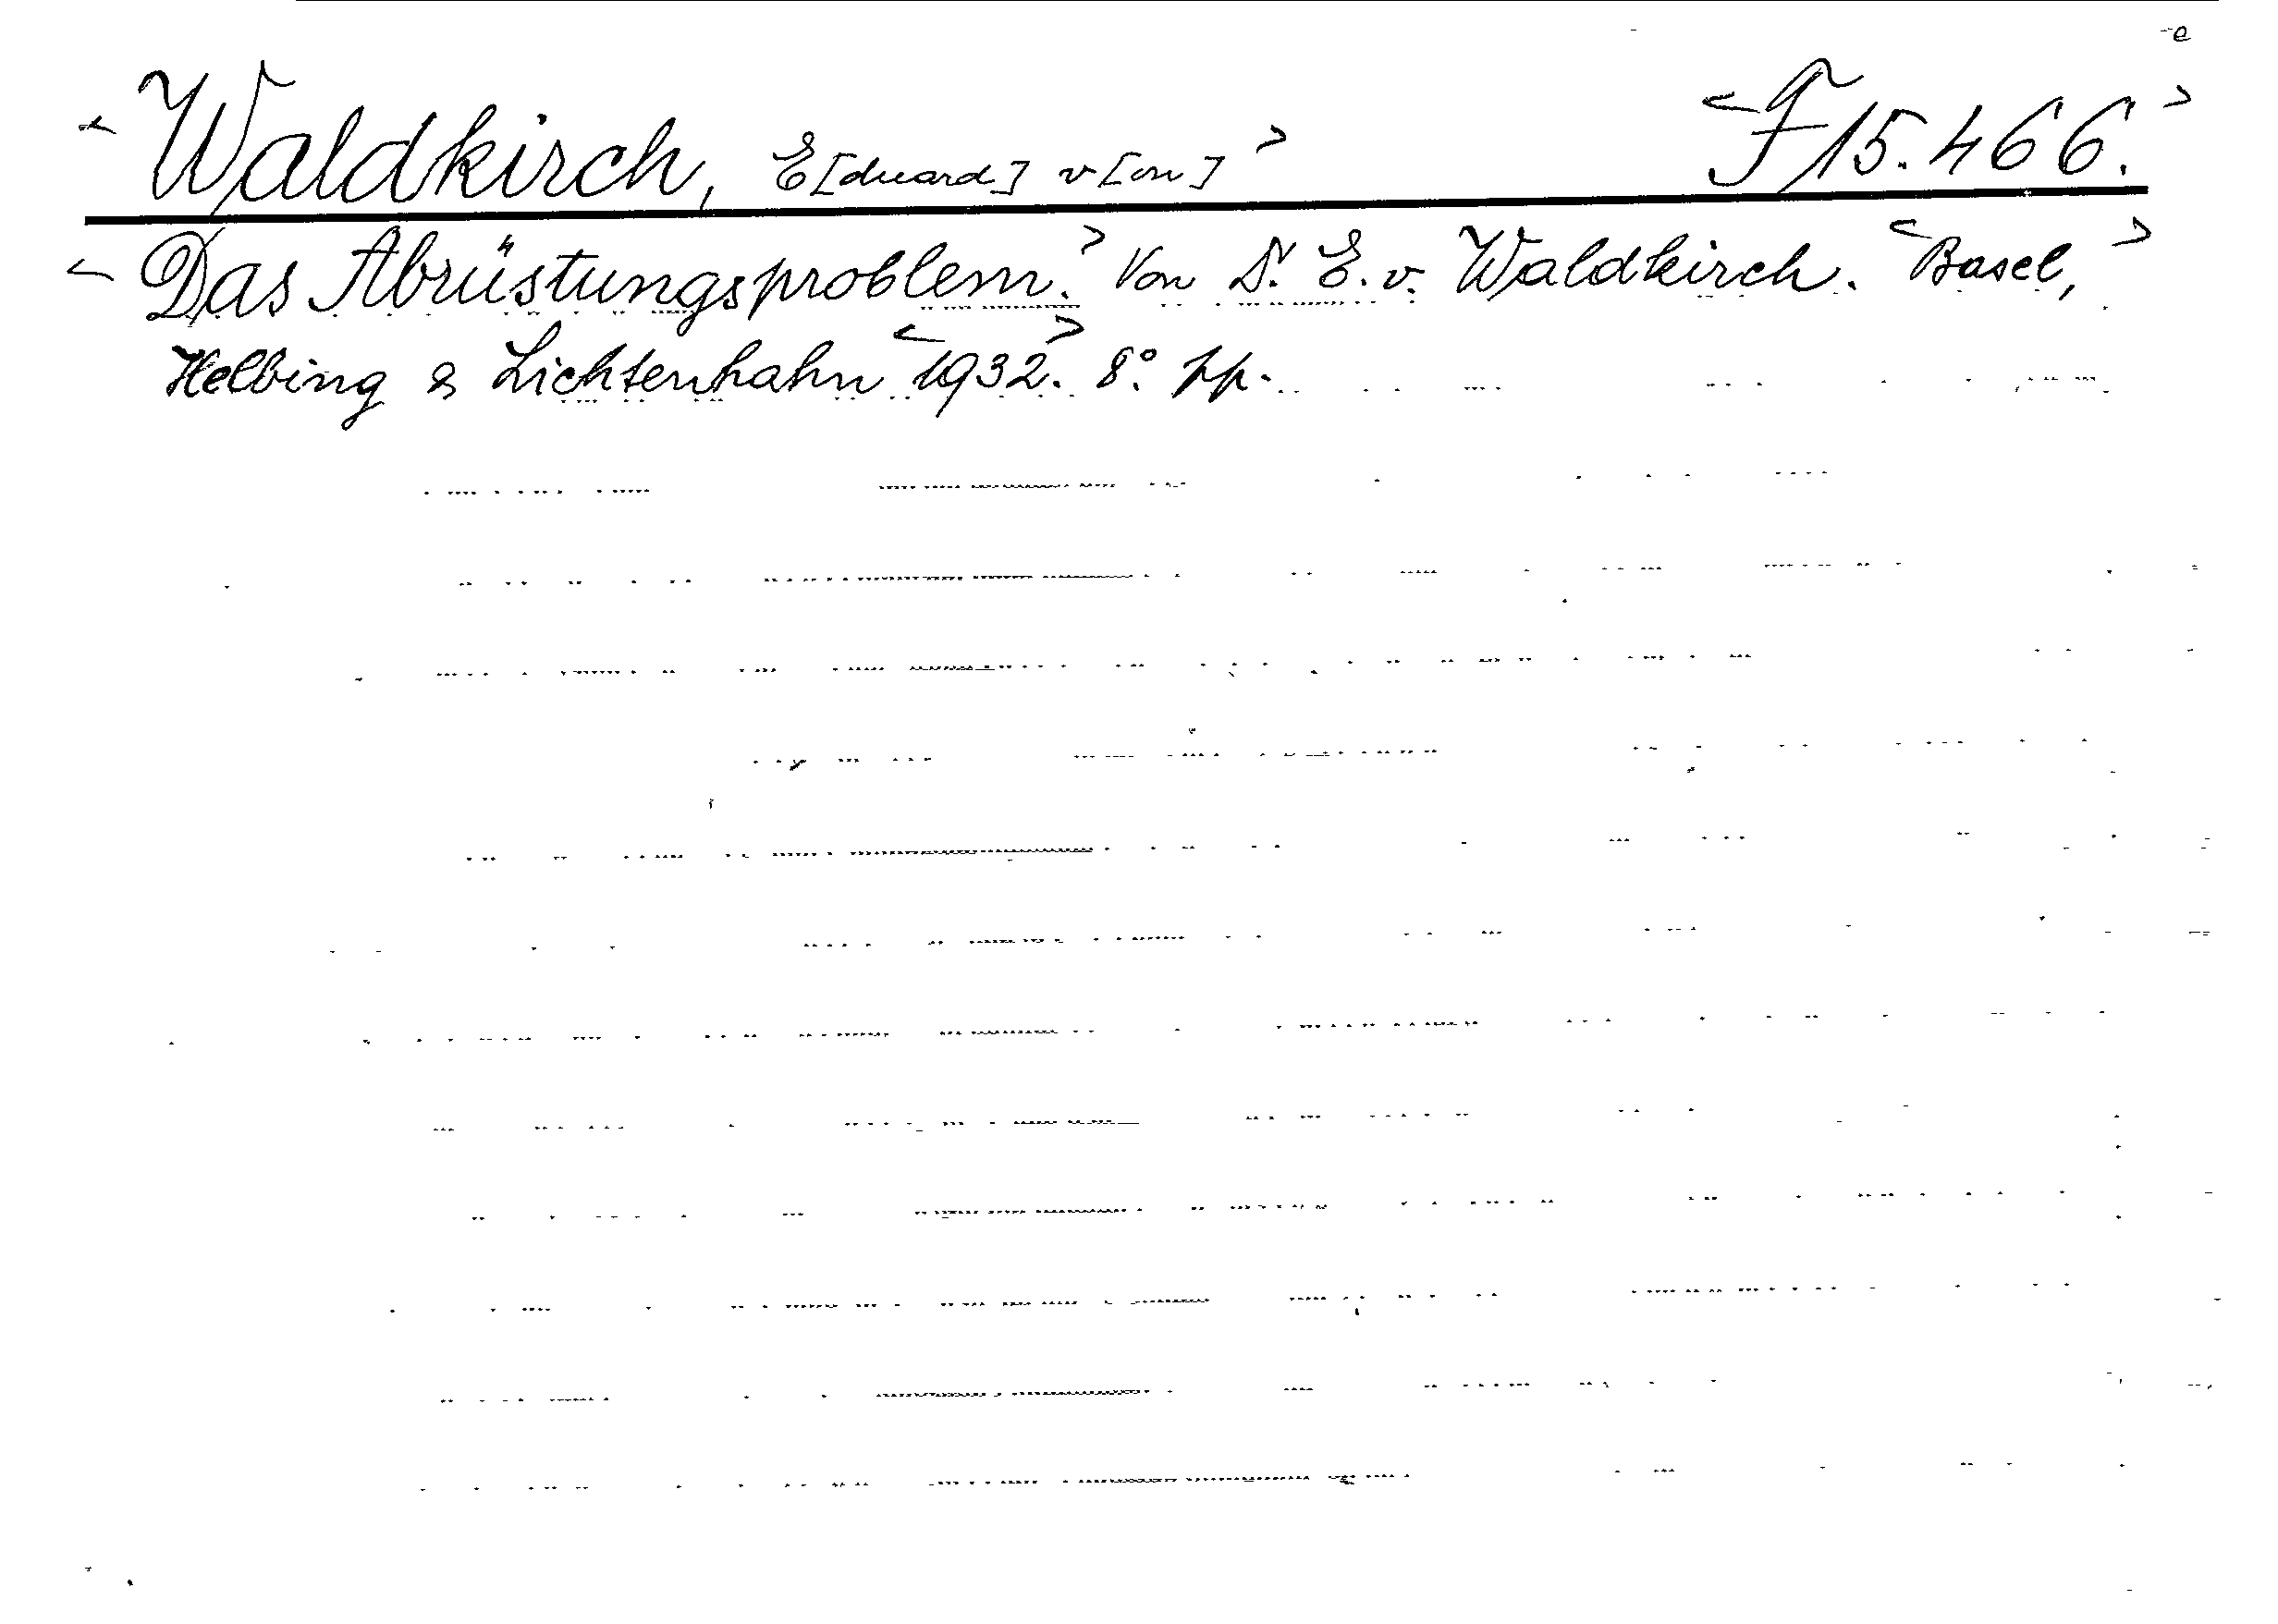 <Waldkirch, E[duard] v[on]> <F 15.466.>
<Das Abrüstungsproblem.> Von Dr. E. v. Waldkirch. <Basel,>
Helbing & Lichtenhahn <1932>. 8°. pp.